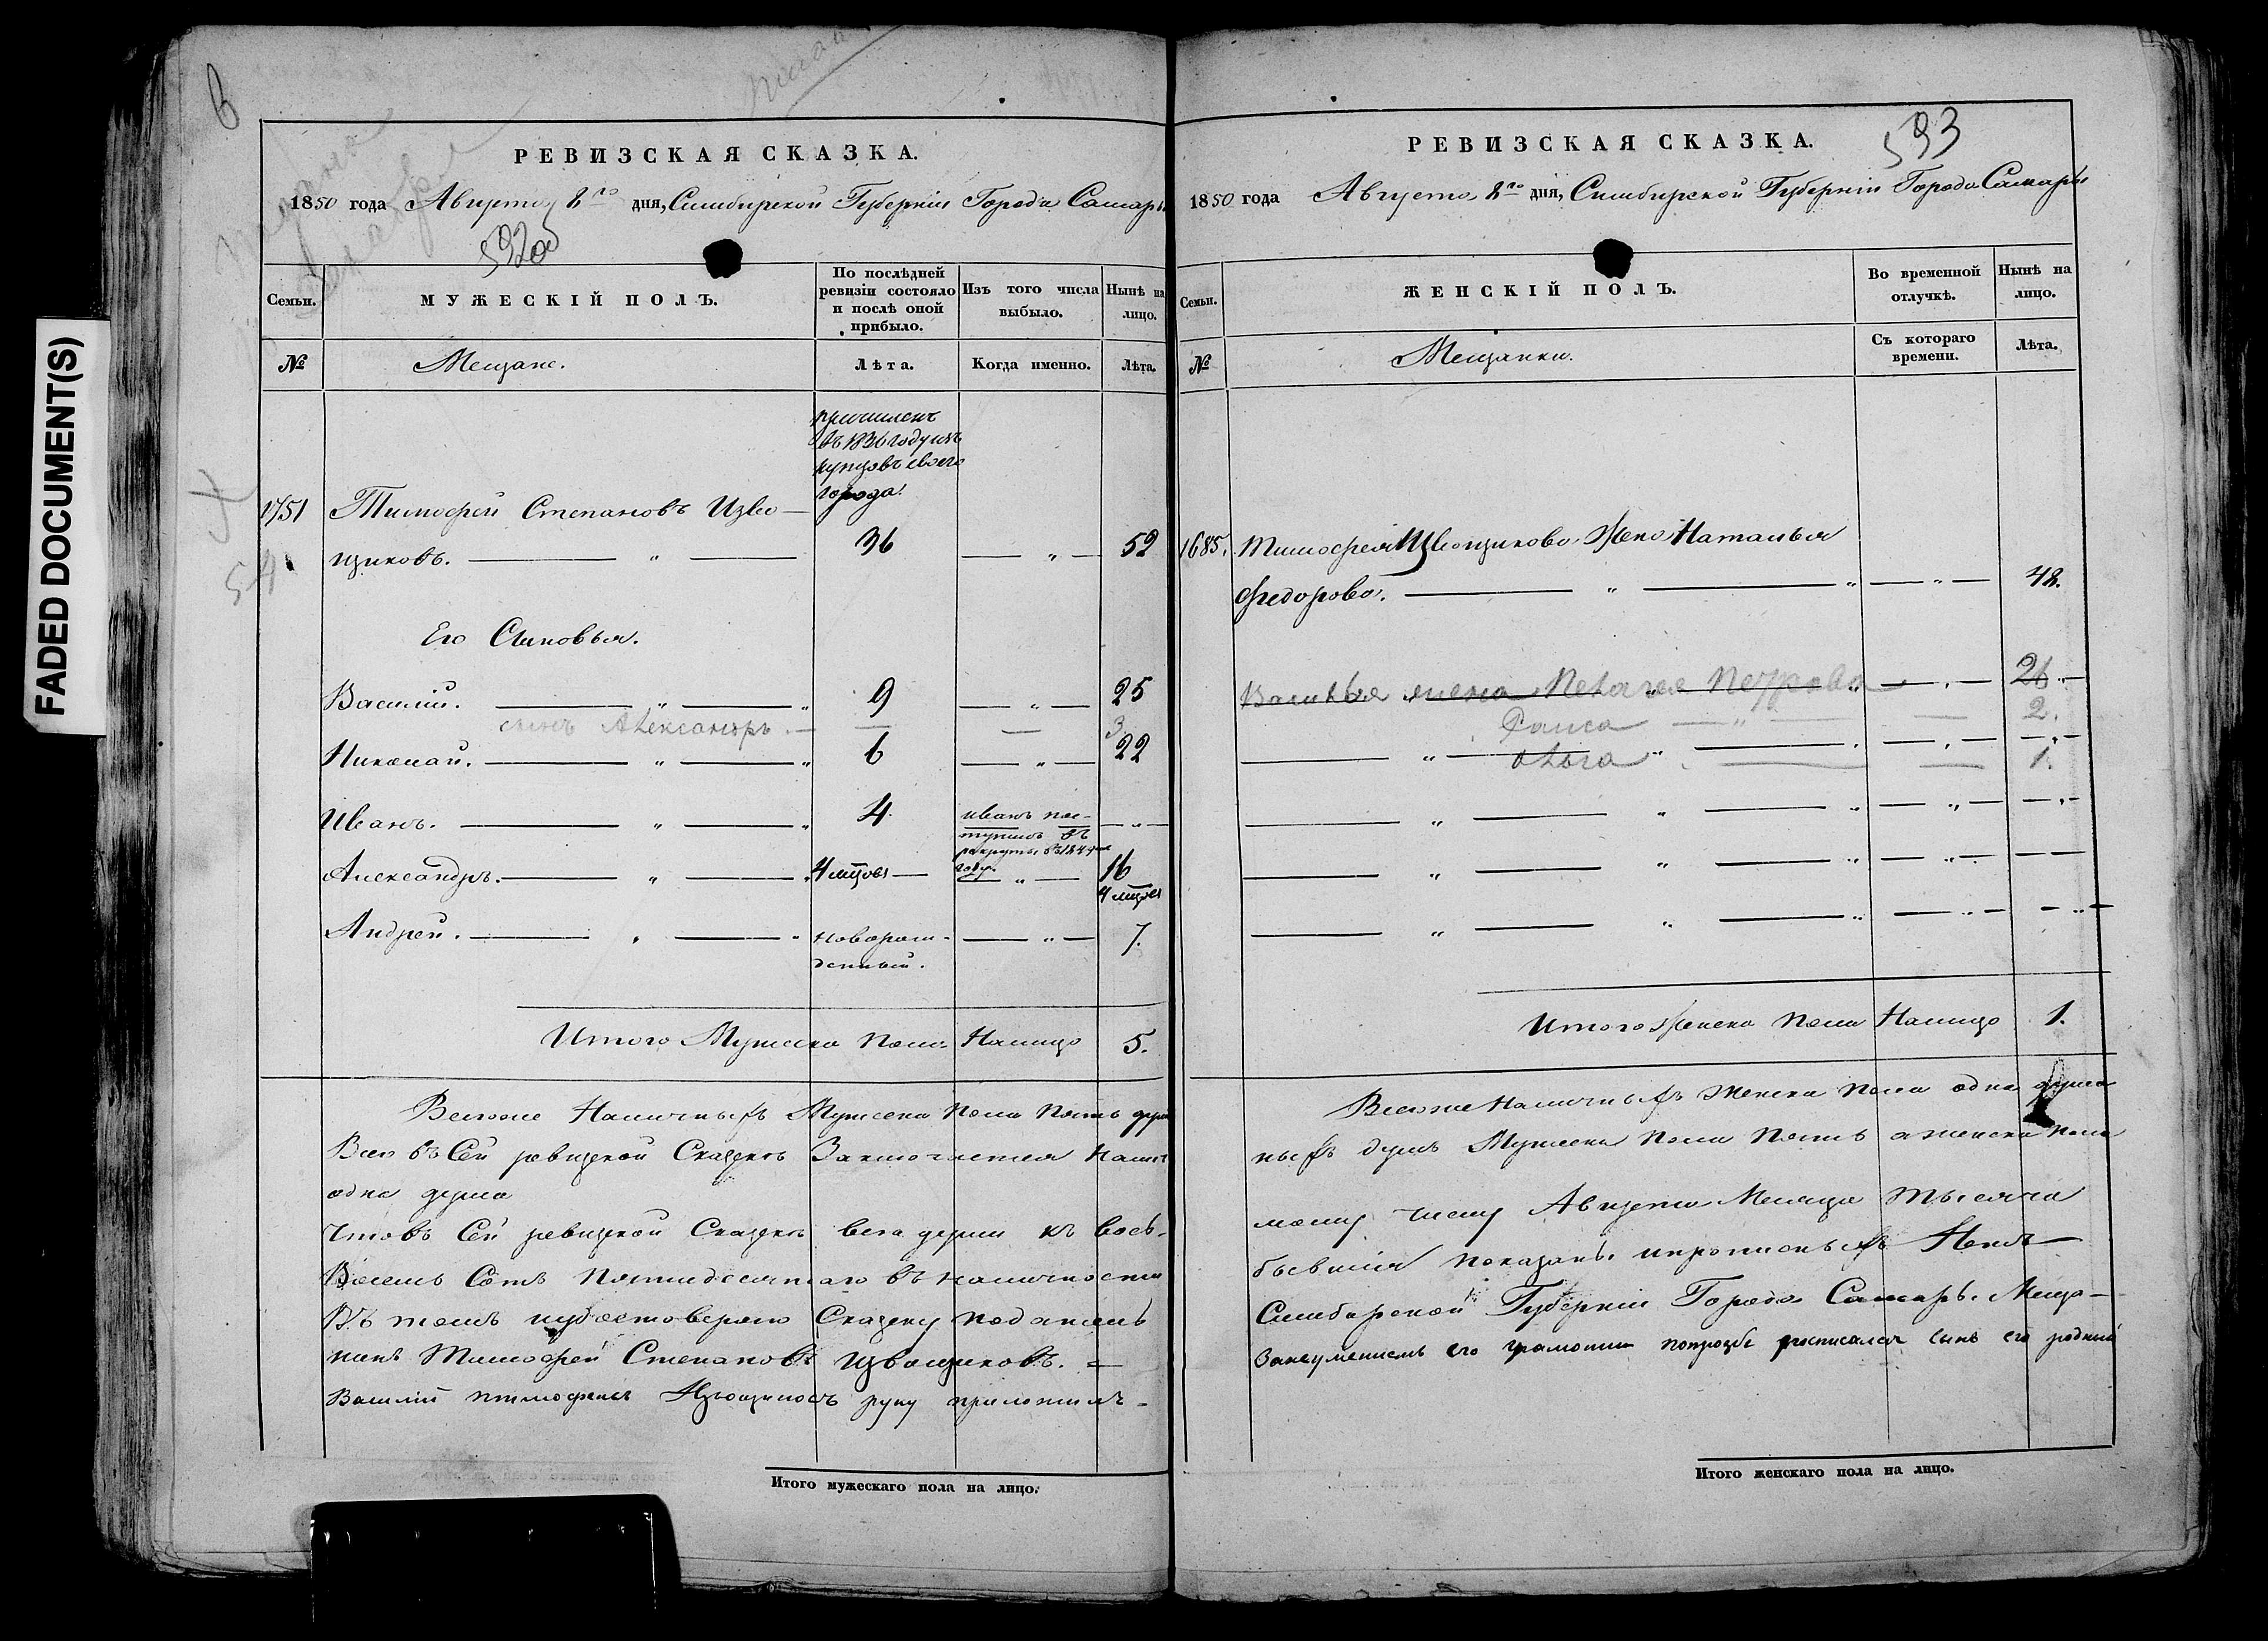 FADED DOCUMENT(S)
РЕВИЗСКАЯ СКАЗКА.
1850 года Августа 8го дня, Симбирской Губернiи Города Самары
592об
Семьи.
МУЖЕСКIЙ ПОЛЪ.
По послѣдней ревизiи состояло и послѣ оной прибыло.
Изъ того числа выбыло.
Нынѣ на лицо.
№
Мещане.
Лѣта.
Когда именно.
Лѣта.
причисленъ
въ 1836 году изъ
купцовъ своего
города.
1751 Тимофей Степановъ Изво-
щиковъ. — " — 36 — " — 52
54
Его Сыновья.
Василий. — " — 9 — " — 25
сынъ Александръ. — — — 3
Николай. — " — 6 — " — 22
Иванъ. — " — 4 иванъ пос-
тупилъ въ
рекруты въ 1844
году. — " —
Александръ. — " — 4 мцовъ — " — 16
4 мцовъ
Андрей. — " — новорож-
денный. — " — 7.
Итого Мужска пола На лицо 5.
Всего же Наличныхъ Мужска пола пять душъ
Всего въ Сей ревизкой Сказкѣ Заключается Налич
одна душа
Что въ Сей ревизкой Сказкѣ все души къ вось-
Восемь Сотъ пятидесятаго въ наличности
Въ томъ и удостоверяю Сказку подписалъ
нинъ Тимофей Степановъ Извощиковъ. =
Василий Тимофеевъ Извощиковъ руку приложилъ
Итого мужескаго пола на лицо.
РЕВИЗСКАЯ СКАЗКА.
593
1850 года Августа 8го дня, Симбирской Губернiи Города Самары
Семьи.
ЖЕНСКIЙ ПОЛЪ.
Во временной отлучкѣ.
Нынѣ на лицо.
№
Мещанки.
Съ котораго времени.
Лѣта.
1685. Тимофея Извощикова Жена Наталья
Федорова. — " — " — " — 48.
Василья жена Пелагея Петрова — " — 26
Раиса — " — — 2.
Ольга — — 1.
Итого Женска пола На лицо 1.
Всего же Наличныхъ Женска пола одна душа
ныхъ душъ Мужска пола пять а женска пола
мому числу Августа Месяца тысяча
бывшия показаны и прописныхъ Нетъ
Симбирской Губернiи Города Самары Меща-
За неумениемъ его грамоти по прозьбе росписался сынъ его родный
Итого женскаго пола на лицо.